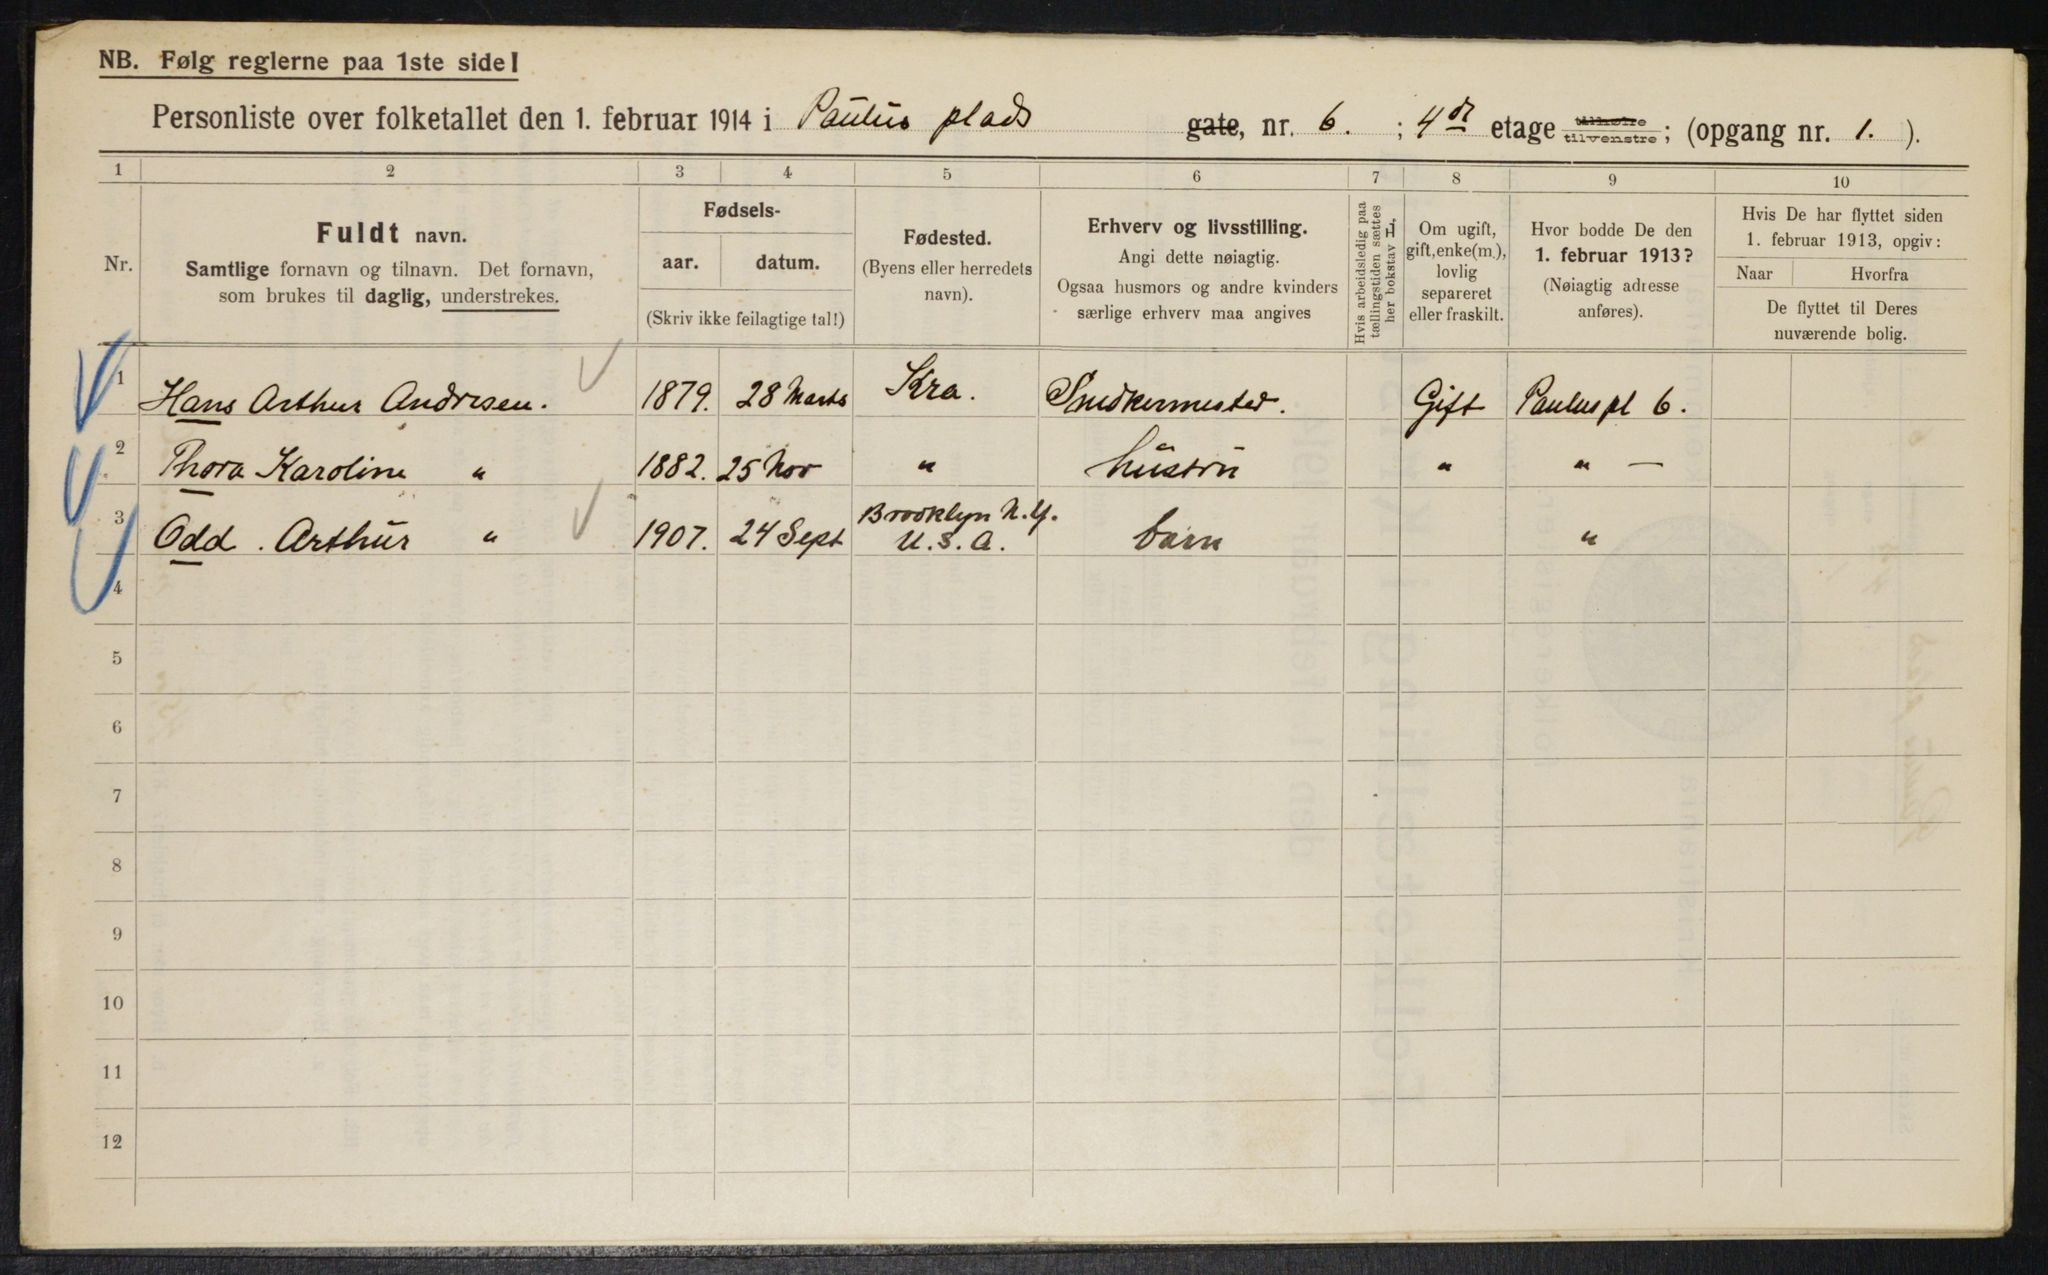 NB. Følg reglerne paa 1ste side!
Personliste over folketallet den 1. februar 1914 i Paulus plads gate, nr. 6. ; 4de etage tilhøire tilvenstre ; (opgang nr. 1. ).
1 2 3 4 5 6 7 8 9 10
Nr.
Fuldt navn.
Samtlige fornavn og tilnavn. Det fornavn,
som brukes til daglig, understrekes.
Fødsels-
aar. datum.
(Skriv ikke feilagtige tal!)
Fødested.
(Byens eller herredets
navn).
Erhverv og livsstilling.
Angi dette nøiagtig.
Ogsaa husmors og andre kvinders
særlige erhverv maa angives
Hvis arbeidsledig paa
tællingstiden sættes
her bokstav L.
Om ugift,
gift, enke(m.),
lovlig
separeret
eller fraskilt.
Hvor bodde De den
1. februar 1913?
(Nøiagtig adresse
anføres).
Hvis De har flyttet siden
1. februar 1913, opgiv:
Naar Hvorfra
De flyttet til Deres
nuværende bolig.
1 Hans Arthur Andresen. 1879. 28 Marts Kra. Snedkermester. Gift Paulus pl 6.
2 Thora Karoline " 1882. 25 Nov " hustru " " —
3 Odd. Arthur " 1907. 24 Sept Brooklyn N.Y. U.S.A. barn "
4
5
6
7
8
9
10
11
12